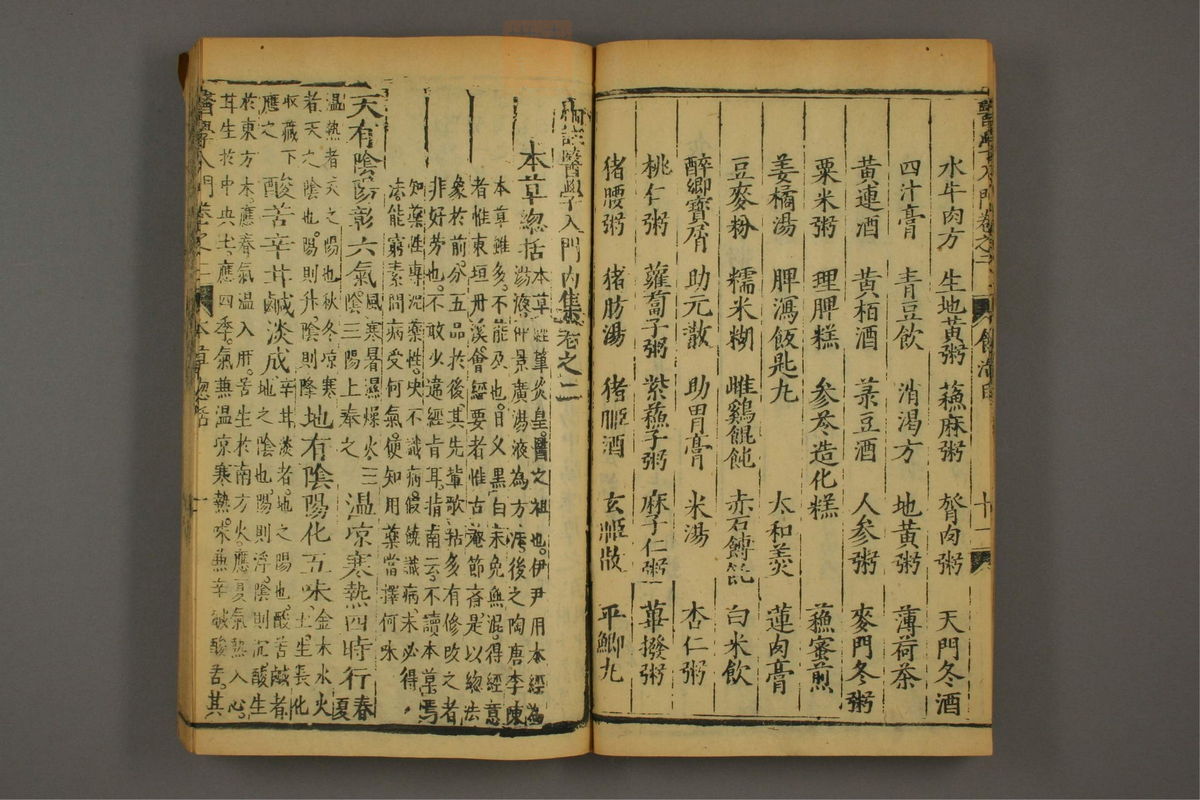 水牛肉方 生地黃粥 蘓麻粥 脊肉粥 天門冬酒
四汁膏 青豆飲 消渴方 地黃粥 薄荷茶
黃連酒 黃栢酒 菉豆酒 人參粥 麥門冬粥
粟米粥 理脾糕 參苓造化糕 蘓蜜煎
姜橘湯 脾瀉飯匙丸 太和羮 蓮肉膏
豆麥粉 糯米糊 雌鷄餛飩 赤石餺飥 白米飲
醉鄉寶屑 助元散 助胃膏 米湯 杏仁粥
桃仁粥 蘿蔔子粥 紫蘓子粥 麻子仁粥 蓽撥粥
猪腰粥 猪肪湯 猪胆酒 玄胆散 平鯽丸
醫學入門內集卷之二
本草總括 本草經肇炎皇醫之祖也伊尹用本經為
湯液仲景廣湯液為方後之陶唐李陳
本草雖多不能及也 黑白未免無混得經意
者惟東垣丹溪會經要者惟古菴節齋是以總法
象於前分五品於後其先輩歌括多有修改之者
非好劳也不敢少違經旨耳指南云不讀本草焉
知藥性專泥藥性央不識病假饒識病未必得
法能窮素問病受何氣便知用藥當擇何味
天有陰陽彰六氣 風寒暑濕燥火三陰三陽上奉之 溫凉寒熱四時行 春夏
溫熱者天之陽也秋冬凉寒
者天之陰也陽則升陰則降 地有陰陽化五味 金木水火土生長化
收藏下應之 酸苦辛甘鹹淡成 辛甘淡者地之陽也酸苦鹹者地之陰也陽則浮陰則沉酸生
於東方木應春氣溫入肝苦生於南方火應夏氣熱入心
甘生於中央土應四季氣兼溫凉寒熱味兼辛鹹酸苦其